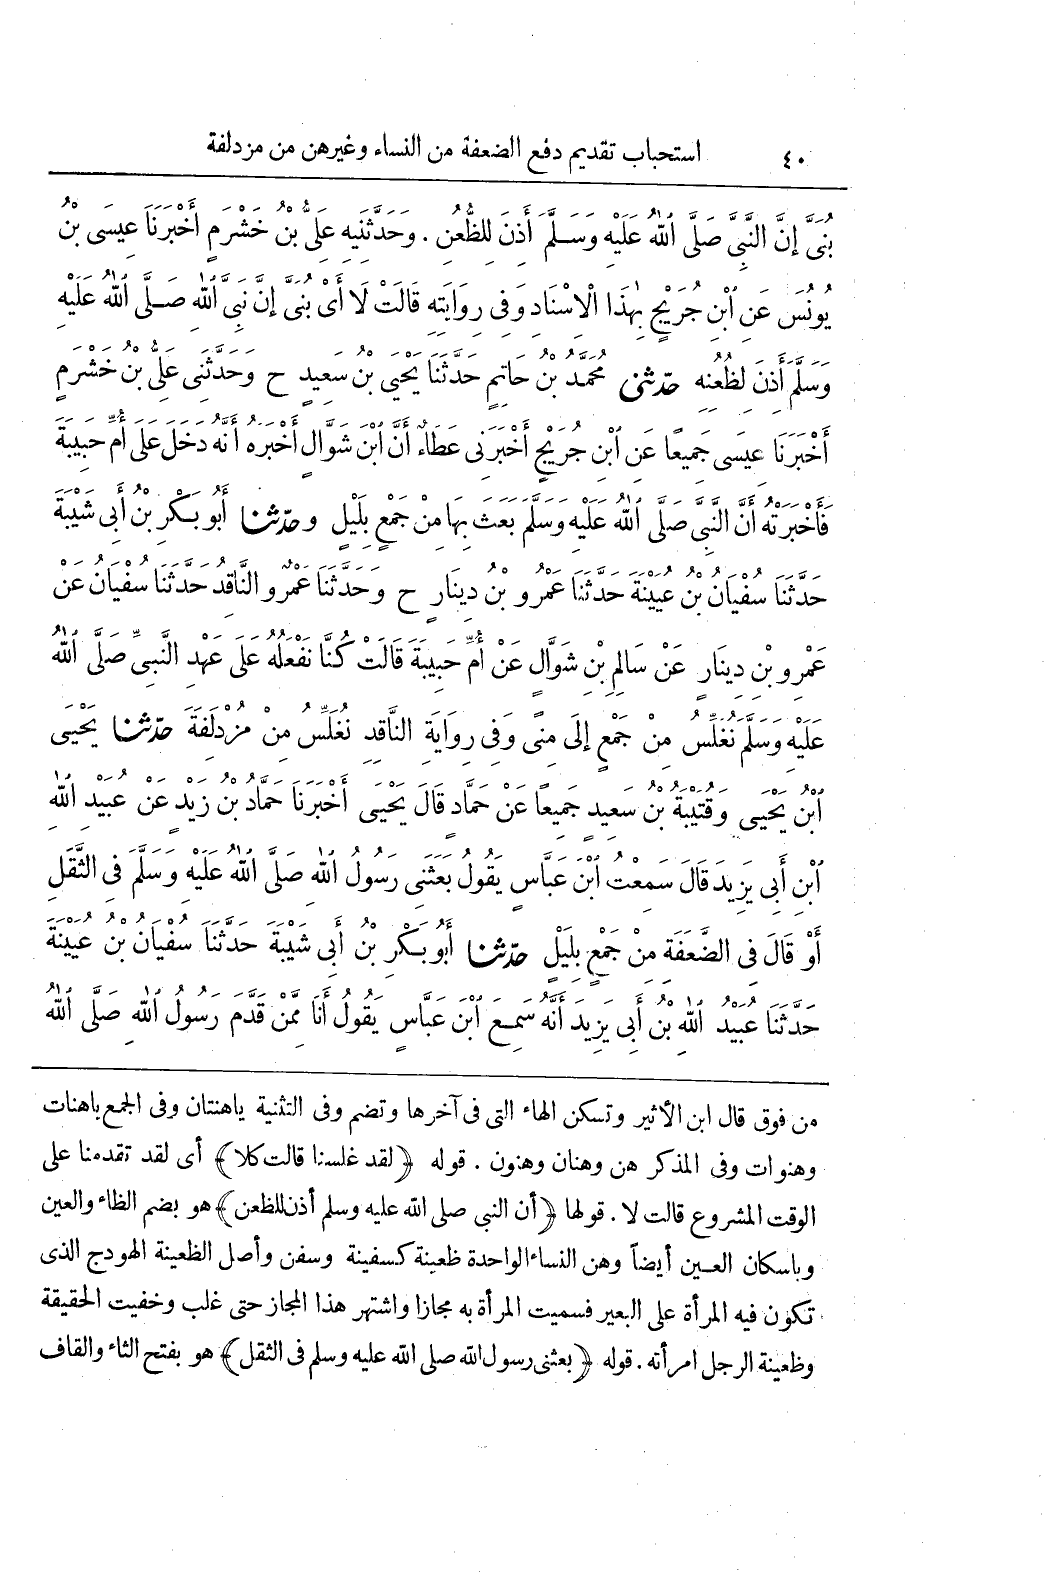 ٤٠ استحباب تقديم دفع الضعفة من النساء وغيرهن من مزدلفة
بُنَيَّ إِنَّ النَّبِيَّ صَلَّى اللهُ عَلَيْهِ وَسَلَّمَ أَذِنَ لِلظُّعُنِ . وَحَدَّثَنِيهِ عَلِيُّ بْنُ خَشْرَمٍ أَخْبَرَنَا عِيسَى بْنُ
يُونُسَ عَنِ ابْنِ جُرَيْجٍ بِهٰذَا الْإِسْنَادِ وَفِي رِوَايَتِهِ قَالَتْ لَا أَيْ بُنَيَّ إِنَّ نَبِيَّ اللهِ صَلَّى اللهُ عَلَيْهِ
وَسَلَّمَ أَذِنَ لِظُعُنِهِ حدّثني مُحَمَّدُ بْنُ حَاتِمٍ حَدَّثَنَا يَحْيَى بْنُ سَعِيدٍ ح وَحَدَّثَنِي عَلِيُّ بْنُ خَشْرَمٍ
أَخْبَرَنَا عِيسَى جَمِيعًا عَنِ ابْنِ جُرَيْجٍ أَخْبَرَنِي عَطَاءٌ أَنَّ ابْنَ شَوَّالٍ أَخْبَرَهُ أَنَّهُ دَخَلَ عَلَى أُمِّ حَبِيبَةَ
فَأَخْبَرَتْهُ أَنَّ النَّبِيَّ صَلَّى اللهُ عَلَيْهِ وَسَلَّمَ بَعَثَ بِهَا مِنْ جَمْعٍ بِلَيْلٍ وحدّثنا أَبُو بَكْرِ بْنُ أَبِي شَيْبَةَ
حَدَّثَنَا سُفْيَانُ بْنُ عُيَيْنَةَ حَدَّثَنَا عَمْرُو بْنُ دِينَارٍ ح وَحَدَّثَنَا عَمْرٌو النَّاقِدُ حَدَّثَنَا سُفْيَانُ عَنْ
عَمْرِو بْنِ دِينَارٍ عَنْ سَالِمِ بْنِ شَوَّالٍ عَنْ أُمِّ حَبِيبَةَ قَالَتْ كُنَّا نَفْعَلُهُ عَلَى عَهْدِ النَّبِيِّ صَلَّى اللهُ
عَلَيْهِ وَسَلَّمَ نُغَلِّسُ مِنْ جَمْعٍ إِلَى مِنًى وَفِي رِوَايَةِ النَّاقِدِ نُغَلِّسُ مِنْ مُزْدَلِفَةَ حدّثنا يَحْيَى
ابْنُ يَحْيَى وَقُتَيْبَةُ بْنُ سَعِيدٍ جَمِيعًا عَنْ حَمَّادٍ قَالَ يَحْيَى أَخْبَرَنَا حَمَّادُ بْنُ زَيْدٍ عَنْ عُبَيْدِ اللهِ
ابْنِ أَبِي يَزِيدَ قَالَ سَمِعْتُ ابْنَ عَبَّاسٍ يَقُولُ بَعَثَنِي رَسُولُ اللهِ صَلَّى اللهُ عَلَيْهِ وَسَلَّمَ فِي الثَّقَلِ
أَوْ قَالَ فِي الضَّعَفَةِ مِنْ جَمْعٍ بِلَيْلٍ حدّثنا أَبُو بَكْرِ بْنُ أَبِي شَيْبَةَ حَدَّثَنَا سُفْيَانُ بْنُ عُيَيْنَةَ
حَدَّثَنَا عُبَيْدُ اللهِ بْنُ أَبِي يَزِيدَ أَنَّهُ سَمِعَ ابْنَ عَبَّاسٍ يَقُولُ أَنَا مِمَّنْ قَدَّمَ رَسُولُ اللهِ صَلَّى اللهُ
من فوق قال ابن الأثير وتسكن الهاء التى فى آخرها وتضم وفى التثنية ياهنتان وفى الجمع ياهنات
وهنوات وفى المذكر هن وهنان وهنون . قوله ﴿لقد غلسنا قالت كلا﴾ أى لقد تقدمنا على
الوقت المشروع قالت لا . قولها ﴿أن النبى صلى الله عليه وسلم أذن للظعن﴾ هو بضم الظاء والعين
وباسكان العين أيضاً وهن النساء الواحدة ظعينة كسفينة وسفن وأصل الظعينة الهودج الذى
تكون فيه المرأة على البعير فسميت المرأة به مجازا واشتهر هذا المجاز حتى غلب وخفيت الحقيقة
وظعينة الرجل امرأته . قوله ﴿بعثنى رسول الله صلى الله عليه وسلم فى الثقل﴾ هو بفتح الثاء والقاف